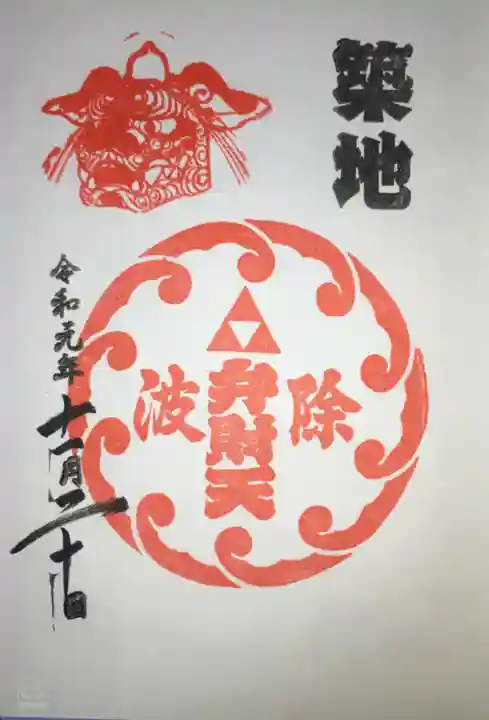 築地
波除
弁財天
令和元年十一月二十日